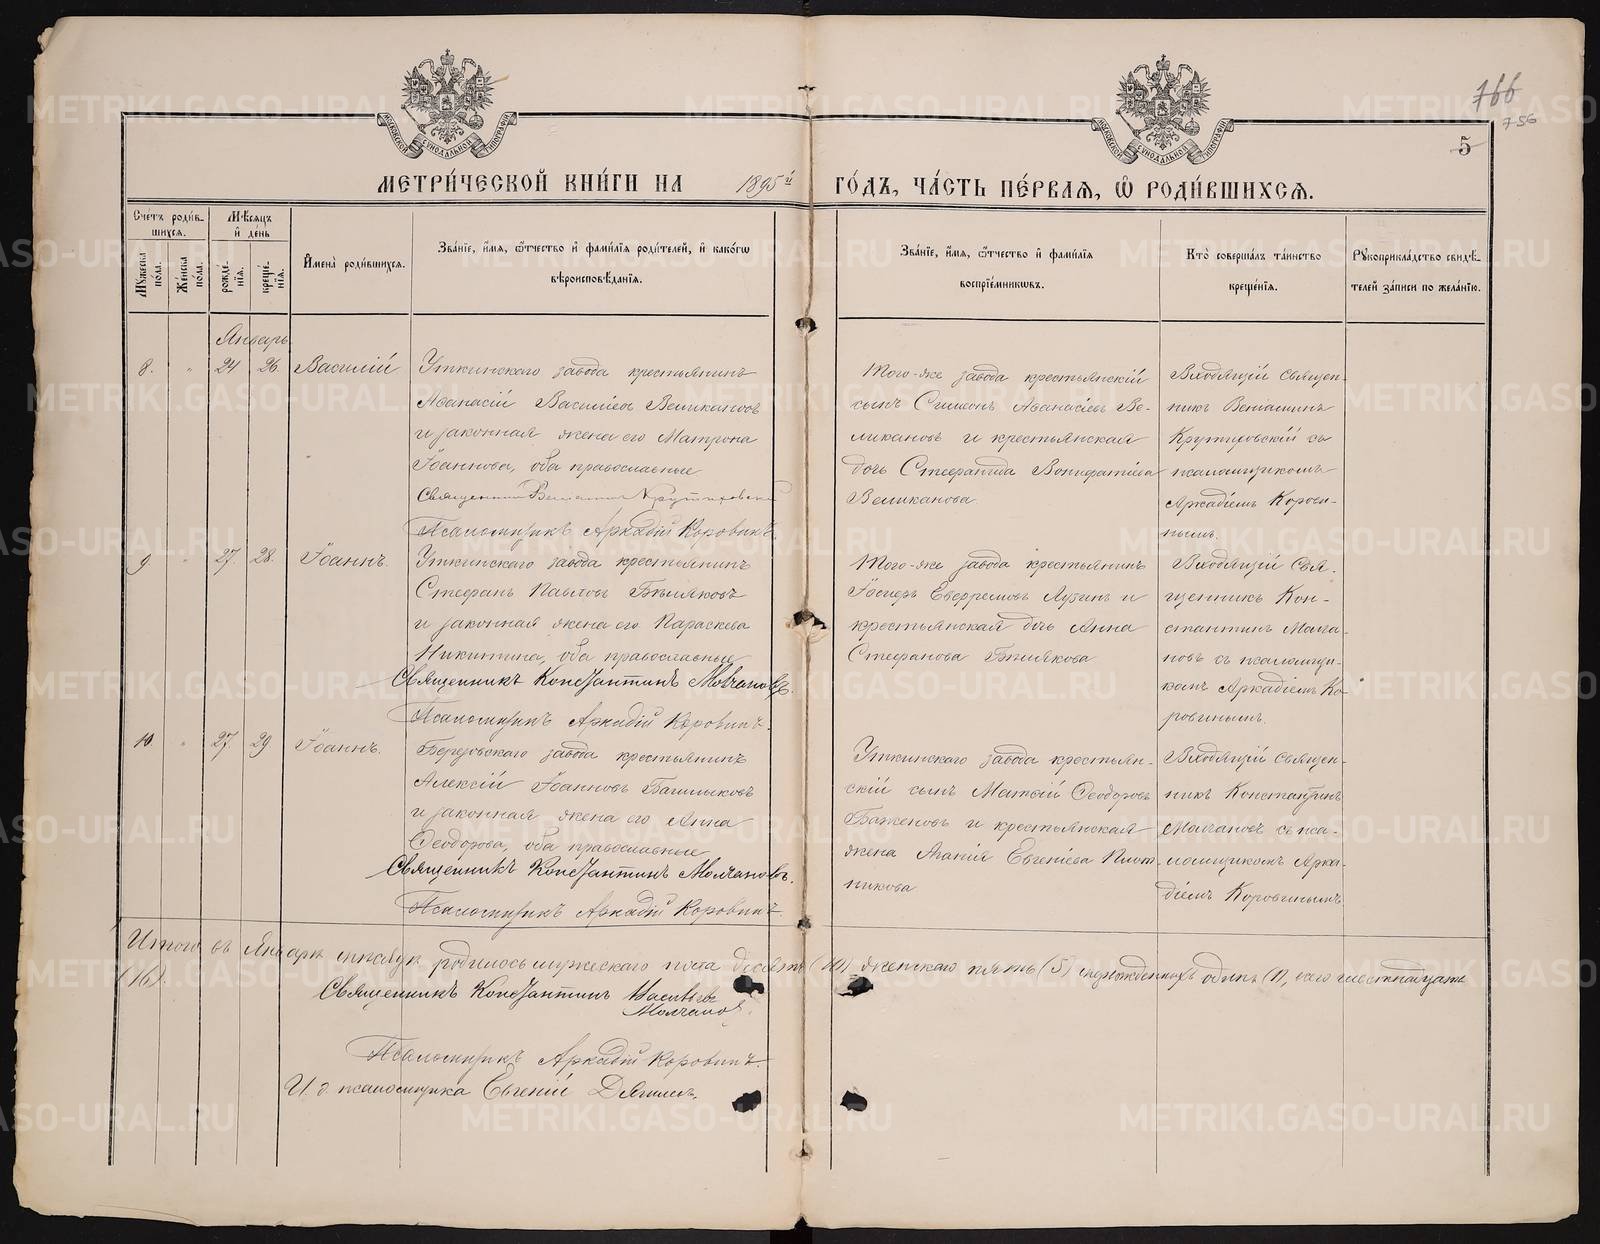 766
756
5
МОСКОВСКОЙ СѴНОДАЛЬНОЙ ТИПОГРАФІИ
МОСКОВСКОЙ СѴНОДАЛЬНОЙ ТИПОГРАФІИ
МЕТРИ́ЧЕСКОЙ КНИ́ГИ НА 1895й ГО́ДЪ, ЧА́СТЬ ПЕ́РВАѦ, Ѽ РОДИ́ВШИХСѦ.
Сче́тъ роди́в-
шихся.
Мѣ́сяцъ
и҆ де́нь
Мꙋ́жеска
пола.
Же́нска
пола.
рожде́-
нїѧ.
креще́-
нїѧ.
И҆мена̀ роди́вшихся.
Зва́нїе, и҆́мя, ѻ҆́тчество и҆ фами́лїя роди́телей, и҆ како́гѡ
вѣроисповѣ́данїя.
Зва́нїе, и҆́мя, ѻ҆́тчество и҆ фами́лїя
воспрїе́мниковъ.
Кто̀ соверша́лъ та́инство
креще́нїя.
Рꙋкоприкла́дство свидѣ́-
телей за́писи по жела́нїю.
Январь
8. " 24 26. Василій
Уткинскаго завода крестьянинъ
Аѳанасій Василіевъ Великановъ
и законная жена его Матрона
Іоаннова, оба православные
Священникъ Веніаминъ Крутиховскій
Псаломщикъ Аркадій Коровинъ.
Того-же завода крестьянскій
сынъ Симеонъ Аѳанасіевъ Ве-
ликановъ и крестьянская
дочь Стефанида Вонифатіева
Великанова
Входящій священ-
никъ Веніаминъ
Крутиховскій съ
псаломщикомъ
Аркадіемъ Корови-
нымъ.
9. " 27. 28. Іоаннъ.
Уткинскаго завода крестьянинъ
Стефанъ Павловъ Бѣляковъ
и законная жена его Параскева
Никитина, оба православные
Священникъ Константинъ Молчановъ.
Псаломщикъ Аркадій Коровинъ.
Того-же завода крестьянинъ
Іосифъ Евфремовъ Лузинъ и
крестьянская дочь Анна
Стефанова Бѣлякова
Входящій свя-
щенникъ Кон-
стантинъ Молча-
новъ съ псаломщи-
комъ Аркадіемъ Ко-
ровинымъ.
10. " 27. 29 Іоаннъ.
Березовскаго завода крестьянинъ
Алексій Іоанновъ
и законная жена его Анна
Ѳеодорова, оба православные
Священникъ Константинъ Молчановъ.
Псаломщикъ Аркадій Коровинъ
Уткинскаго завода крестьян-
скій сынъ Матѳій Ѳеодоровъ
Баженовъ и крестьянская
жена Агапія Евгеніева Плот-
никова
Входящій священ-
никъ Константинъ
Молчановъ съ пса-
ломщикомъ Арка-
діемъ Коровинымъ
Итого въ Январѣ мѣсяцѣ родилось мужескаго пола десять (10) женскаго пять (5) одинъ (1), всего шестнадцать
(16).
Священникъ Константинъ Васильевъ
Молчановъ.
Псаломщикъ Аркадій Коровинъ.
И. д. псаломщика Евгеній Дягилевъ.
METRIKI.GASO-URAL.RU